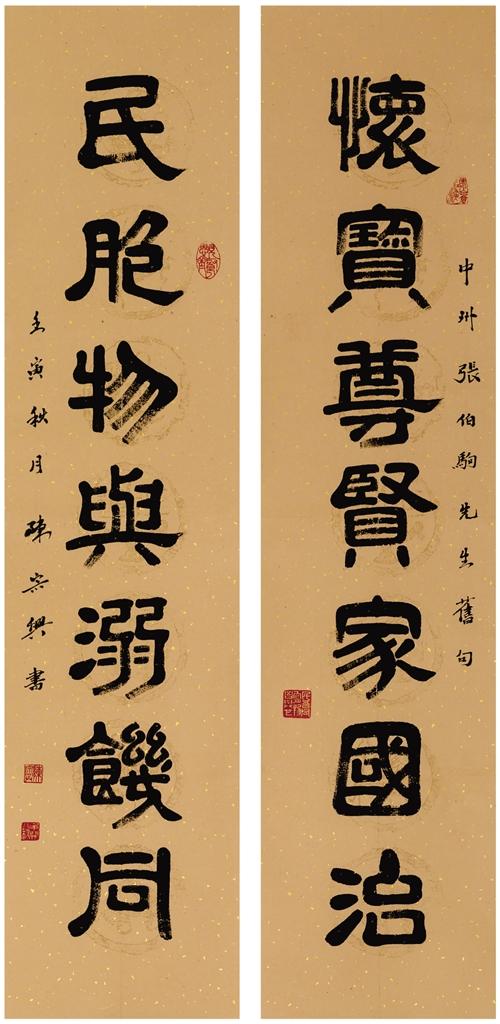 中州張伯駒先生舊句
懷寶尊賢家國治
民胞物與溺饑同
壬寅秋月陳宗興書